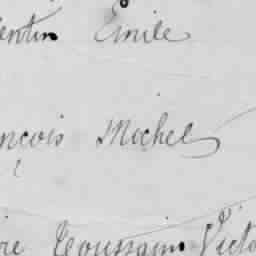 entin Emile
nçois Michel
ire Toussain Victo